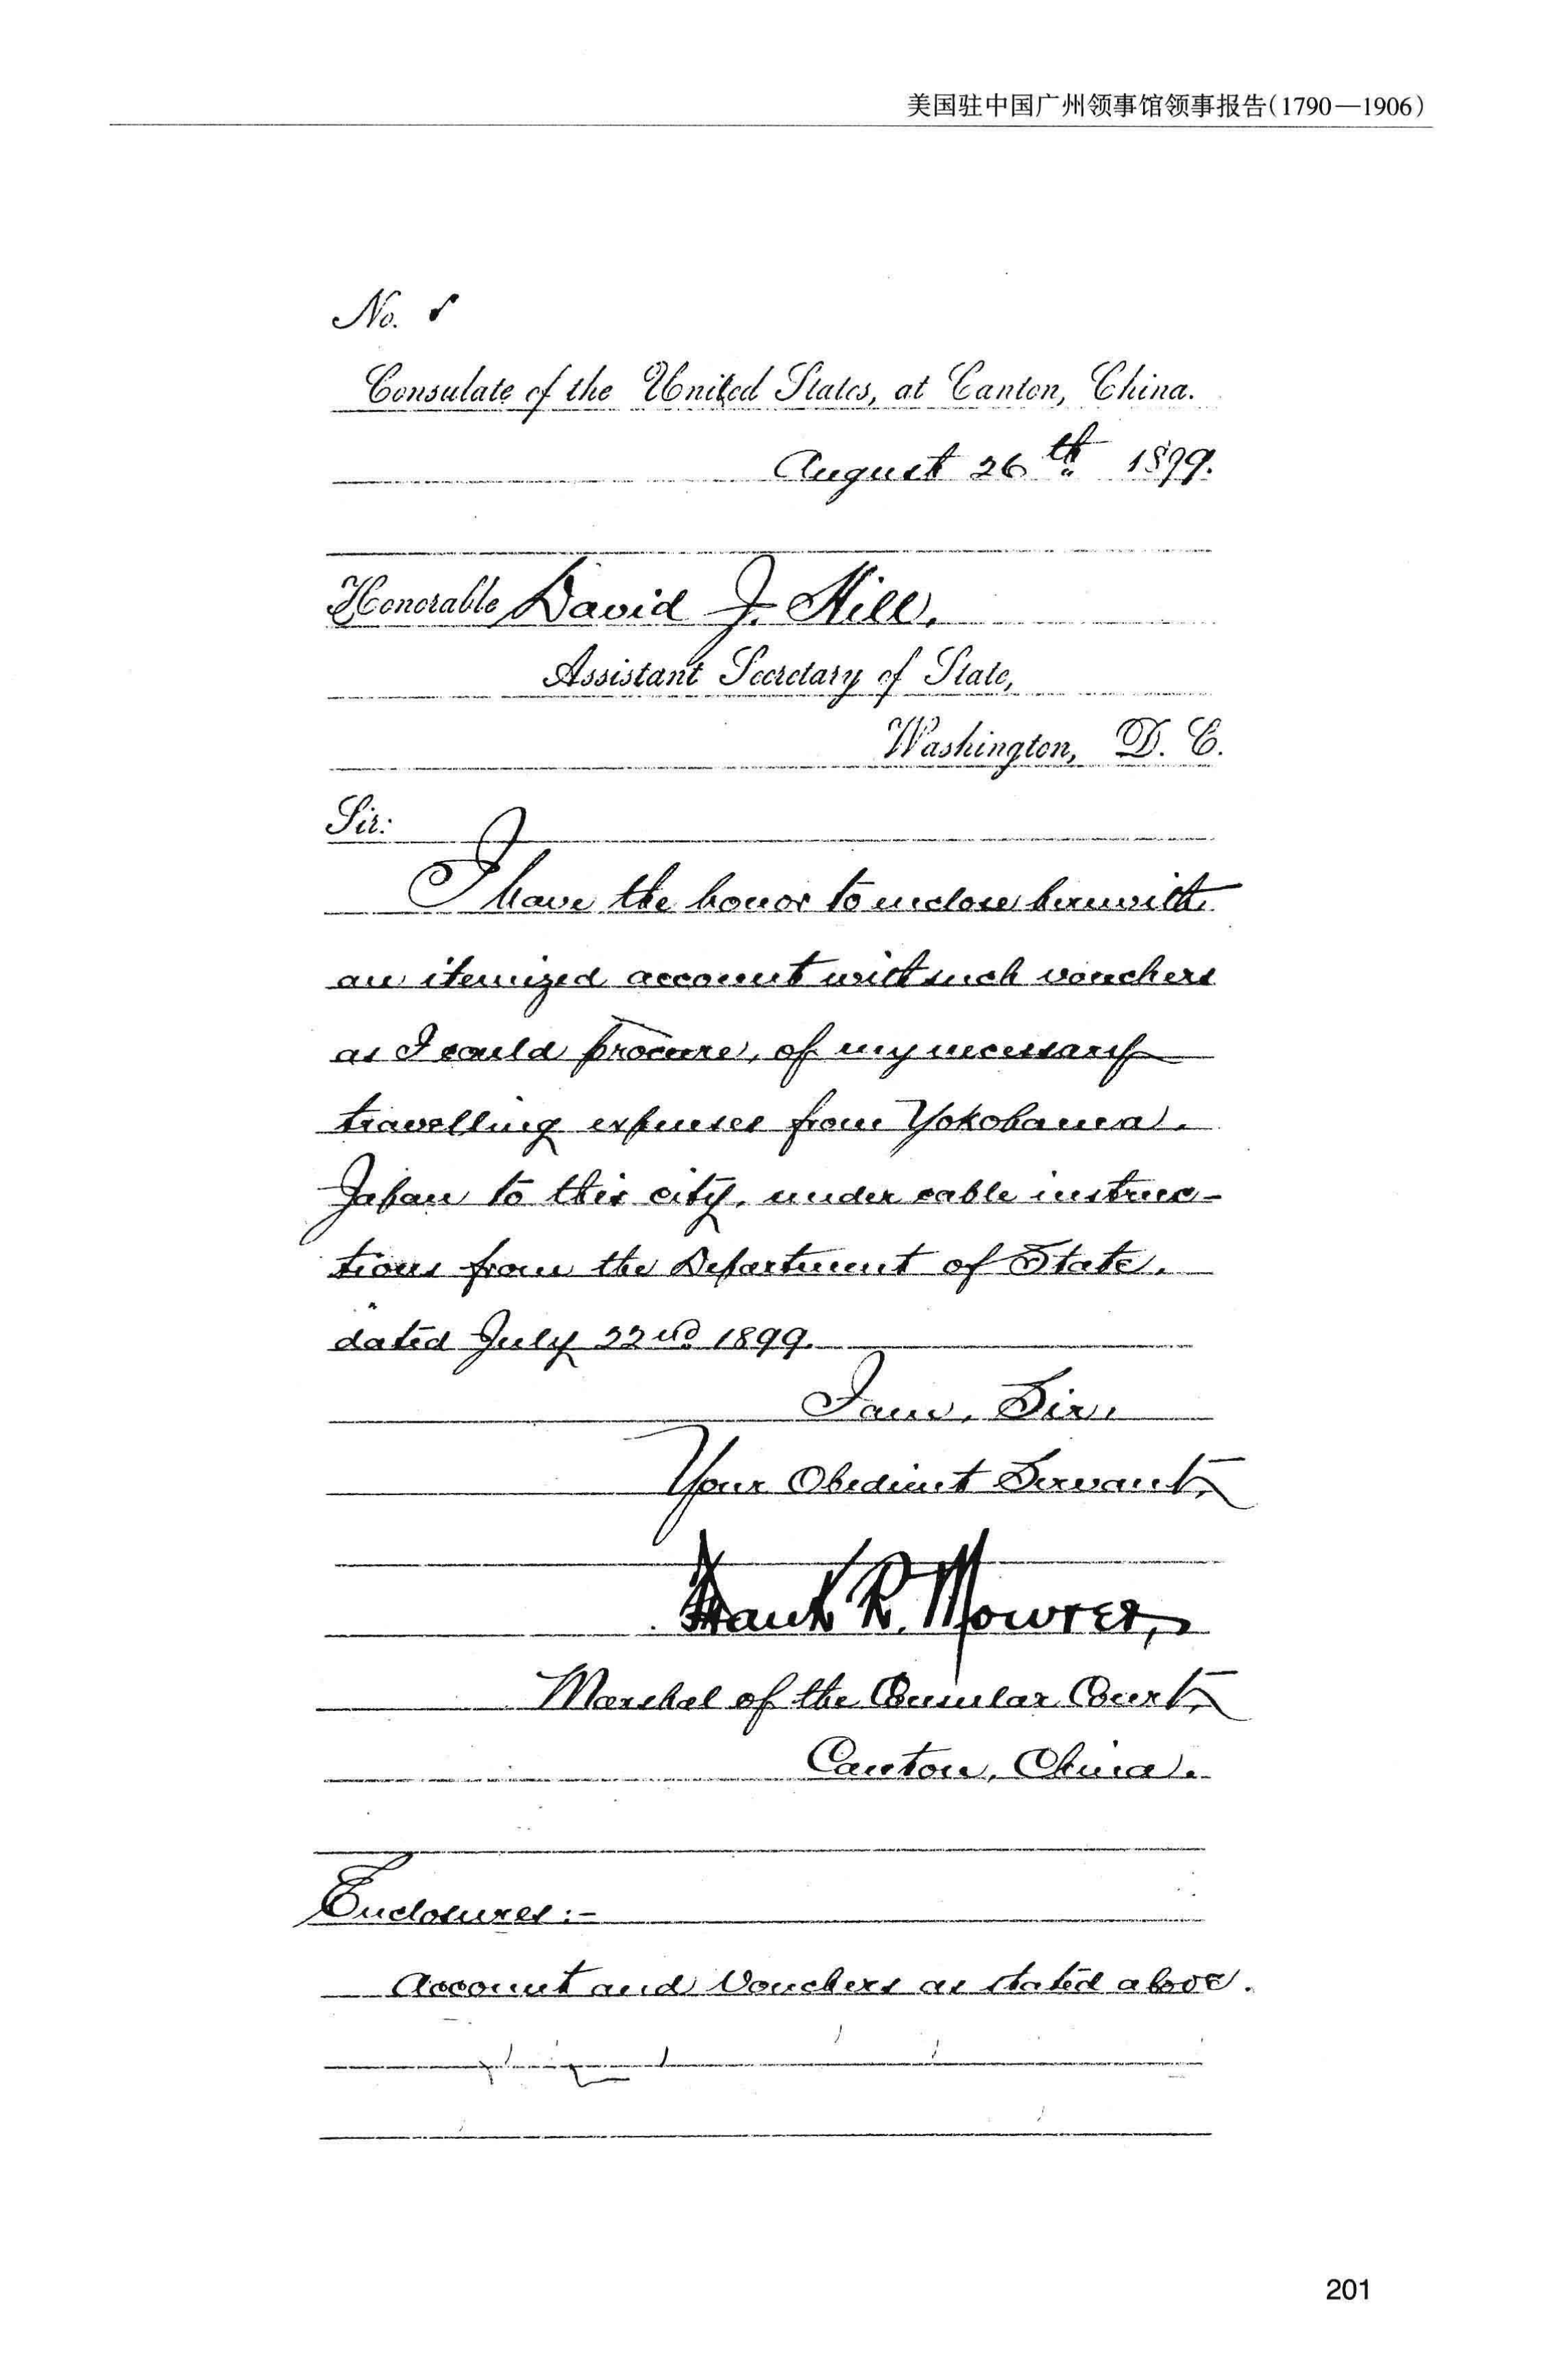 美国驻中国广州领事馆领事报告(1790—1906)
No.
Consulate of the United States, at Canton, China.
August 26th 1899.
Honorable David J. Hill,
Assistant Secretary of State,
Washington, D. C.
Sir:
I have the honor to enclose herewith
an itemized account with such vouchers
as I could procure, of my necessary
travelling expenses from Yokohama,
Japan to this city, under cable instruc-
tions from the Department of State,
dated July 22nd 1899.
I am, Sir,
Your Obedient Servant,
Frank R. Mowrer,
Marshal of the Consular Court,
Canton, China.
Enclosures:-
Account and Vouchers as stated above.
201